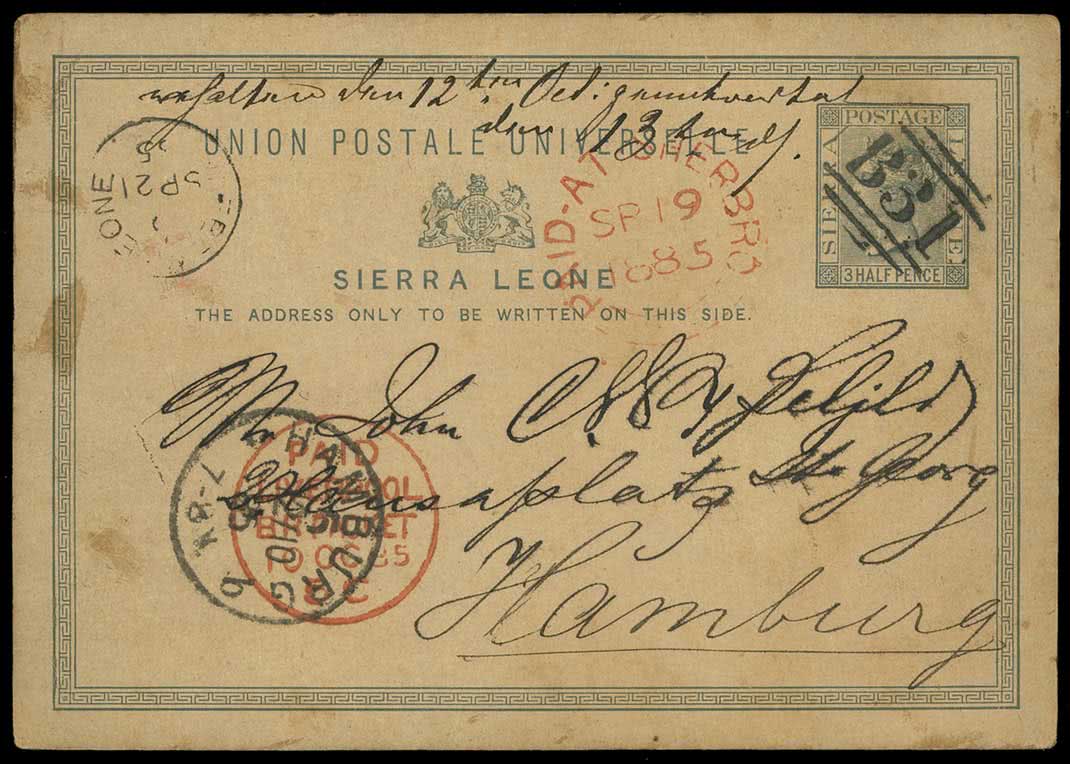 den 12ten
den 13
UNION POSTALE UNIVERSELLE
SIERRA LEONE
THE ADDRESS ONLY TO BE WRITTEN ON THIS SIDE.
POSTAGE
SIERRA LEONE
3 HALF PENCE
B31
EONE
SP 21
PAID-AT SHERBRO
SP 19
1885
Mr John
Hansaplatz St. Georg
Hamburg
HAMBURG
PAID
LIVERPOOL
BR PACKET
10 OC 85